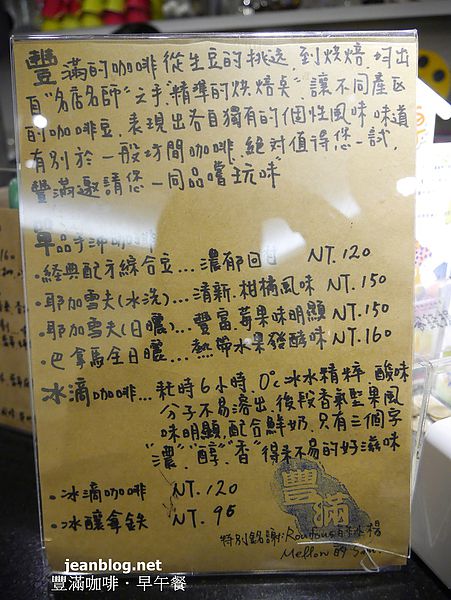 豐滿的咖啡從生豆的挑選到烘焙.均出
自"名店名師"之手.精準的烘焙点~讓不同產區
的咖啡豆.表現出各自獨有的個性風味.味道
有別於一般坊間咖啡.絕對值得您一試.
豐滿邀請您一同品嚐玩味
單品手沖咖啡
·經典配方綜合豆...濃郁回甘 NT.120
·耶加雪夫(水洗)...清新.柑橘風味 NT.150
·耶加雪夫(日曬)...豐富.莓果味明顯 NT.150
·巴拿馬全日曬...熱帶水果發酵味 NT.160
冰滴咖啡...耗時6小時.0℃冰水精粹 酸味
分子不易溶出.後段香氣堅果風
味明顯.配合鮮奶.只有三個字
"濃""醇""香"得來不易的好滋味
·冰滴咖啡 NT.120
·冰釀拿鉄 NT.95
豐滿
特別銘謝:Roufous
Mellow的
jeanblog.net
豐滿咖啡·早午餐